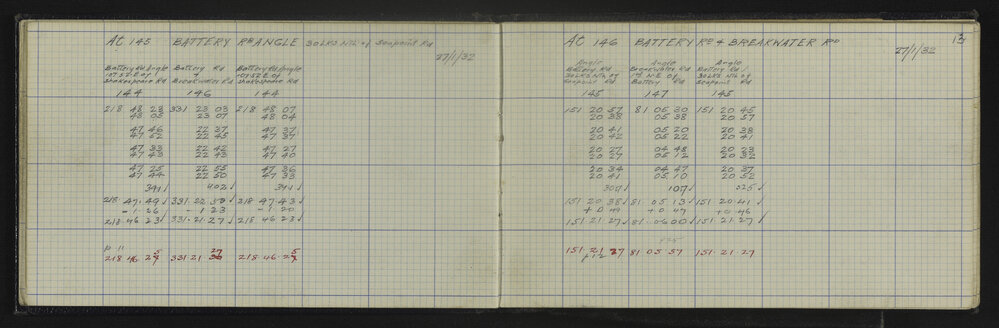 At 145 BATTERY RD ANGLE 30 LKS Nth of Seapoint Rd
27/1/32
Battery Rd Angle Battery Rd Battery Rd Angle
Shakespeare Rd Breakwater Rd Shakespeare Rd
144 146 144
218 48 23 331 23 03 218 48 07
48 05 23 07 48 04
47 46 22 37 47 37
47 52 22 45 47 37
47 33 22 42 47 27
47 43 22 43 47 40
47 25 22 55 47 36
47 44 22 50 47 33
391 402
218 47 49 331 22 50 218 47 43
-1 26 -1 23 -1 20
218 46 23 331 21 27 218 46 23
p 11
218 46 331 21 27 218 46
At 146 BATTERY RD & BREAKWATER RD 13
27/1/32
Angle Angle Battery Rd
Battery Rd Breakwater Rd 30 LKS Nth of
30 LKS Nth of N.E. of Seapoint Rd
Seapoint Rd Battery Rd
145 147 145
151 20 57 81 05 30 151 20 45
20 38 05 38 20 57
20 41 05 20 20 38
20 42 05 22 20 41
20 27 04 48 20 23
20 27 05 12 20 32
20 34 04 47 20 37
20 41 05 10 20 52
307 107 325
151 20 38 81 05 13 151 20 41
+0 49 +0 47 +0 46
151 21 27 81 06 00 151 21 27
151 21 27 81 05 57 151 21 27
p 12